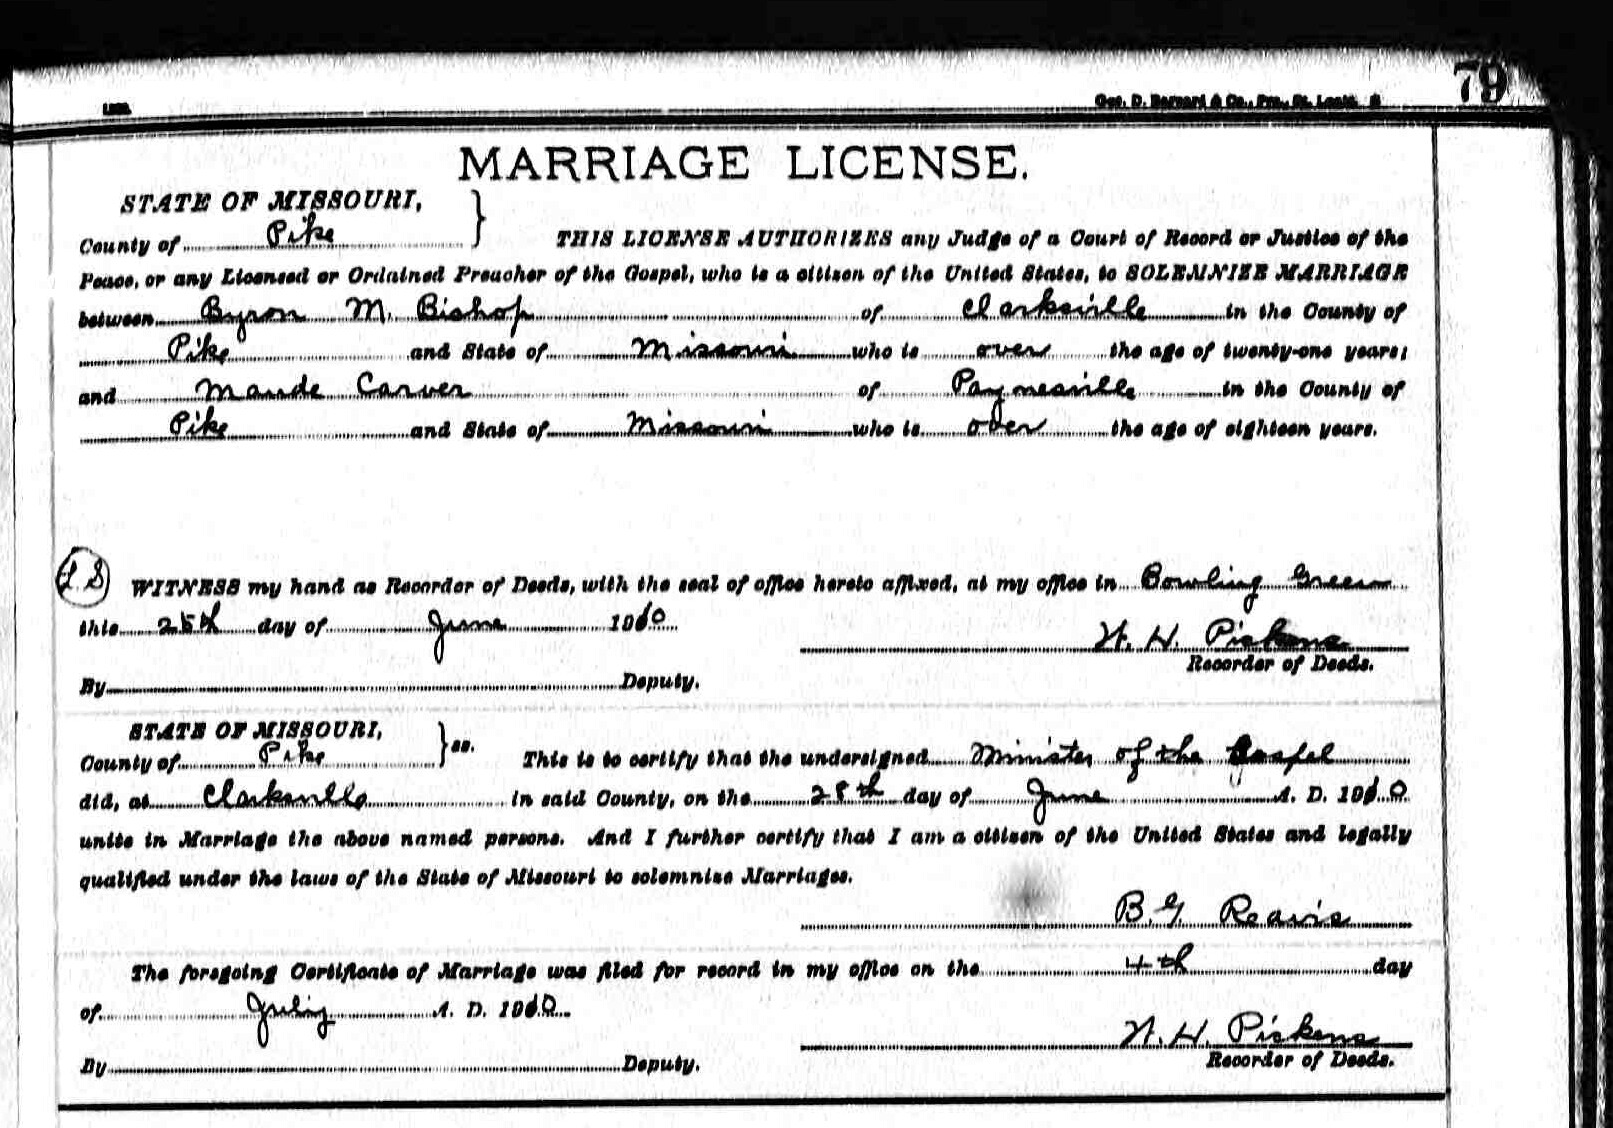 79
Geo. D. Barnard & Co., Prs., St. Louis.
MARRIAGE LICENSE.
STATE OF MISSOURI, }
County of Pike THIS LICENSE AUTHORIZES any Judge of a Court of Record or Justice of the
Peace, or any Licensed or Ordained Preacher of the Gospel, who is a citizen of the United States, to SOLEMNIZE MARRIAGE
between Byron M. Bishop of Clarksville in the County of
Pike and State of Missouri who is over the age of twenty-one years;
and Maude Carver of Paynesville in the County of
Pike and State of Missouri who is over the age of eighteen years.
L.S WITNESS my hand as Recorder of Deeds, with the seal of office hereto affixed, at my office in Bowling Green
this 28th day of June 1910
H. H. Pickens
Recorder of Deeds.
By Deputy.
STATE OF MISSOURI, } ss.
County of Pike This is to certify that the undersigned Minister of the Gospel
did, at Clarksville in said County, on the 28th day of June A. D. 1910
unite in Marriage the above named persons. And I further certify that I am a citizen of the United States and legally
qualified under the laws of the State of Missouri to solemnize Marriages.
B. G. Reavis
The foregoing Certificate of Marriage was filed for record in my office on the 4th day
of July A. D. 1910
H. H. Pickens
By Deputy. Recorder of Deeds.